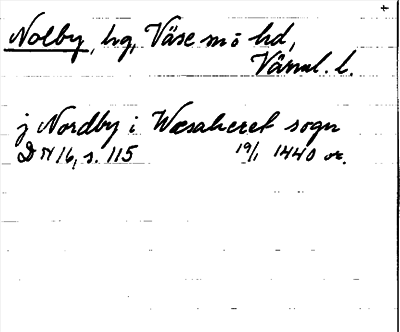 Nolby, hg, Väse sn o hd,
Värml. l.
j Nordby i Wæsaheret sogn
DN 16, s. 115 19/1 1440 or.